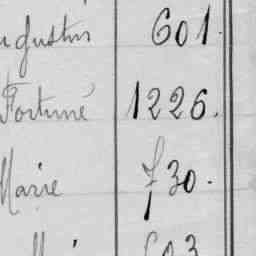 ugustin 601.
Fortuné 1226.
Marie 730.